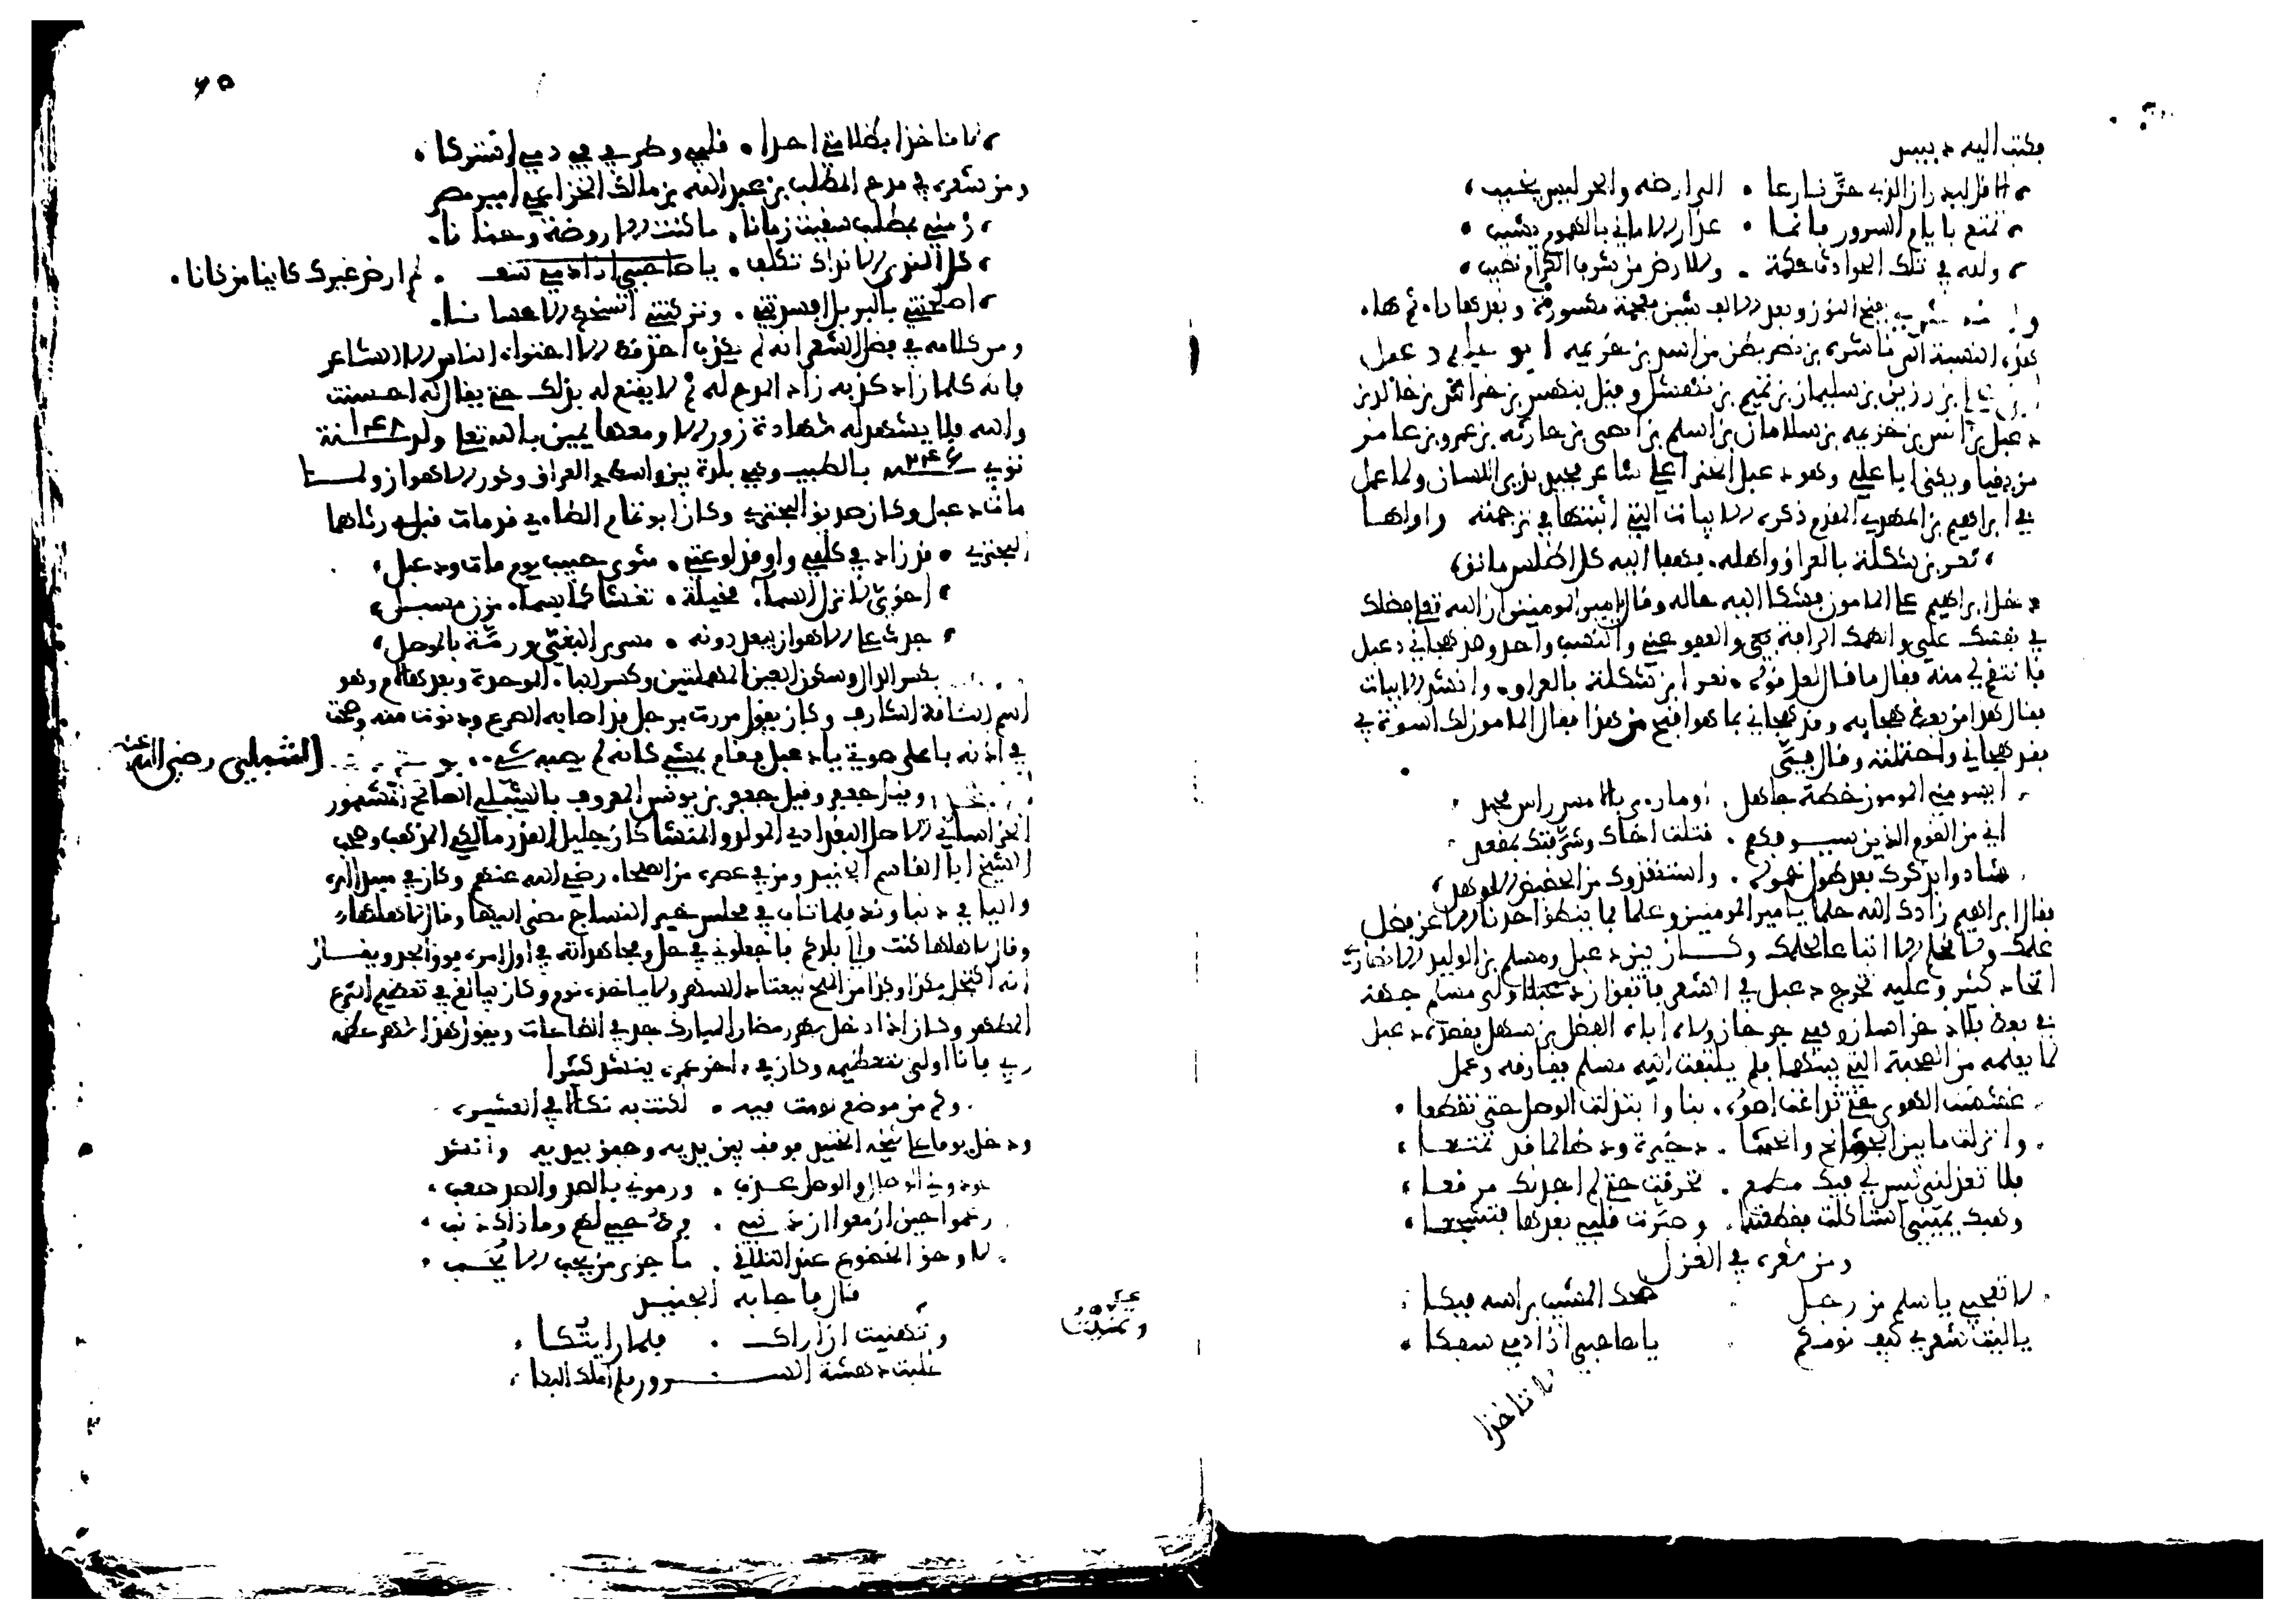 فكتب اليه دبيس
الا قل لبدران الذي حن نازعا الى ارضه والحر ليس يخيب
تمتع بايام السرور فانما عذار الاماني بالهموم يشيب
ولله في تلك الحوادث حكمة وللارض من شرب الكرام نصيب
بفتح النون وبعد الالف شين معجمة مكسورة وبعدها راء ثم هاء
هذه النسبة الى ناشرة بن نصر بطن من اسد بن خزيمة ابو علي دعبل
بن رزين بن سليمان بن تميم بن نهشل وقيل بنهس بن خراش بن خالد بن
دعبل بن انس بن خزيمة بن سلامان بن اسلم بن افصى بن حارثه بن عمرو بن عامر
مزيقيا ويكنى ابا علي وهو دعبل الخزاعي شاعر مجيد بذي اللسان ولما عمل
في ابراهيم بن المهدي المقدم ذكره الابيات التي اثبتها في ترجمته واولها
نعر بن شكلة بالعراق واهله فهفا اليه كل اطلس مائق
دخل ابراهيم على المامون فشكا اليه حاله وقال يامير المومنين ان الله تعلى فضلك
في نفسك علي والهمك الرافة بي والعفو عني والنسب واحد وقد هجاني دعبل
فانتقم لي منه فقال ما قال لعل قوله نعر ابن شكلة بالعراق وانشد الابيات
فقال هذا من بعض هجايه وقد هجاني بما هو اقبح من هذا فقال المامون لك اسوة بي
فقد هجاني واحتملته وقال في
ايسومني المومون خطة جاهل اوما راى بالامس راس محمد
اني من القوم الذين سيوفهم قتلت اخاك وشرفتك بمقعد
شادوا بذكرك بعد طول خموله واستنقذوك من الحضيض الاوهد
فقال ابراهيم زادك الله حلما يامير المومنين وعلما فما ينطق احدنا الا عن فضل
علمك ولا يحلم الا اتباعا لحلمك وكان بين دعبل ومسلم بن الوليد الانصاري
اتحاد كثير وعليه تخرج دعبل في الشعر فاتفق ان ولي مسلم جهة
في بعض بلاد خراسان وهي جرجان ولاه اياها الفضل بن سهل فقصده دعبل
لما يعلمه من الصحبة التي بينهما فلم يلتفت اليه مسلم ففارقه وعمل
غششت الهوى حتى تداعت اصوله بنا وابتذلت الوصل حتى تقطعا
وانزلت ما بين الجوانح والحشا ذخيرة ود طالما قد تمنعا
فلا تعذلني ليس لي فيك مطمع تخرقت حتى لم اجد لك مرقعا
وهبك يميني استاكلت فقطعتها وصبرت قلبي بعدها فتشجعا
ومن شعره في الغزل
لا تعجبي يا سلم من رجل ضحك المشيب براسه فبكا
يا ليت شعري كيف نومكم يا صاحبي اذا دمي سفكا
لا تاخذا
٦٥
لا تاخذا بظلامتي احدا قلبي وطرفي في دمي اشتركا
ومن شعره في مدح المطلب بن عبد الله بن مالك الخزاعي امير مصر
زمني بمطلب سقيت زمانا ما كنت الا روضة وجنانا
كل الندى الا نداك تكلف لم ارض غيرك كاينا من كانا
يا صاحبي اذا دمي سفـ
اصلحتني بالبر بل افسدتني وتركتني اتسخط الاحسانا
ومن كلامه في فضل الشعر انه لم يكذب احد قط الا اجتواه الناس الا الشاعر
فانه كلما زاد كذبه زاد المدح له ثم لا يقنع له بذلك حتى يقال له احسنت
والله فلا يشهد له شهادة زور الا ومعها يمين بالله تعلى ولد سنة ١٤٨
توفي سنة ٢٤٦ بالطيب وهي بلدة بين واسط والعراق وكور الاهواز ولما
مات دعبل وكان صديق البحتري وكان ابو تمام الطاءي قد مات قبله رثاهما
البحتري قد زاد في كلفي واوقد لوعتي مثوى حبيب يوم مات ودعبل
اخوي لا تزل السماء مخيلة تغشاكما بسماء مزن مسبل
جدث على الاهواز يبعد دونه مسرى النعي ورمة بالموصل
بكسر الدال وسكون العين المهملتين وكسر الباء الموحدة وبعدها لام وهو
اسم الناقة الشارف وكان يقول مررت برجل قد اصابه الصرع ودنوت منه وصحت
في اذنه باعلى صوتي يا دعبل فقام يمشي كانه لم يصبه شيء
الشبلي رضي الله عنه
وقيل جعفر بن يونس المعروف بالشبلي الصالح المشهور
الخراساني الاصل البغدادي المولد والمنشا كان جليل القدر مالكي المذهب وصحب
الشيخ ابا القاسم الجنيد ومن في عصره من الصلحاء رضي الله عنهم وكان في مبدا امره
واليا في دنباوند فلما تاب في مجلس خير النساج مضى اليها وقال لاهلها
وقال لاهلها كنت والي بلدكم فاجعلوني في حل ومجاهداته في اول امره فوق الحد ويقال
انه اكتحل بكذا وكذا من الملح ليعتاد السهر ولا ياخذه نوم وكان يبالغ في تعظيم الشرع
المطهر وكان اذا دخل شهر رمضان المبارك جد في الطاعات ويقول هذا شهر عظمه
ربي فانا اولى بتعظيمه وكان في ءاخر عمره ينشد كثيرا
وكم من موضع لو مت فيه لكنت به نكالا في العشيره
ودخل يوما على شيخه الجنيد فوقف بين يديه وصفق بيديه وانشد
عودوني الوصال والوصل عذب ورموني بالصد والصد صعب
زعموا حين ازمعوا ان ذنبي فرط حبي لهم وما ذاك ذنب
لا وحق الخضوع عند التلاقي ما جزى من يحب الا يحب
قال فاجابه الجنيد
وتمنيت ان اراك فلما رايتكا
غلبت دهشة السرور فلم املك البكا